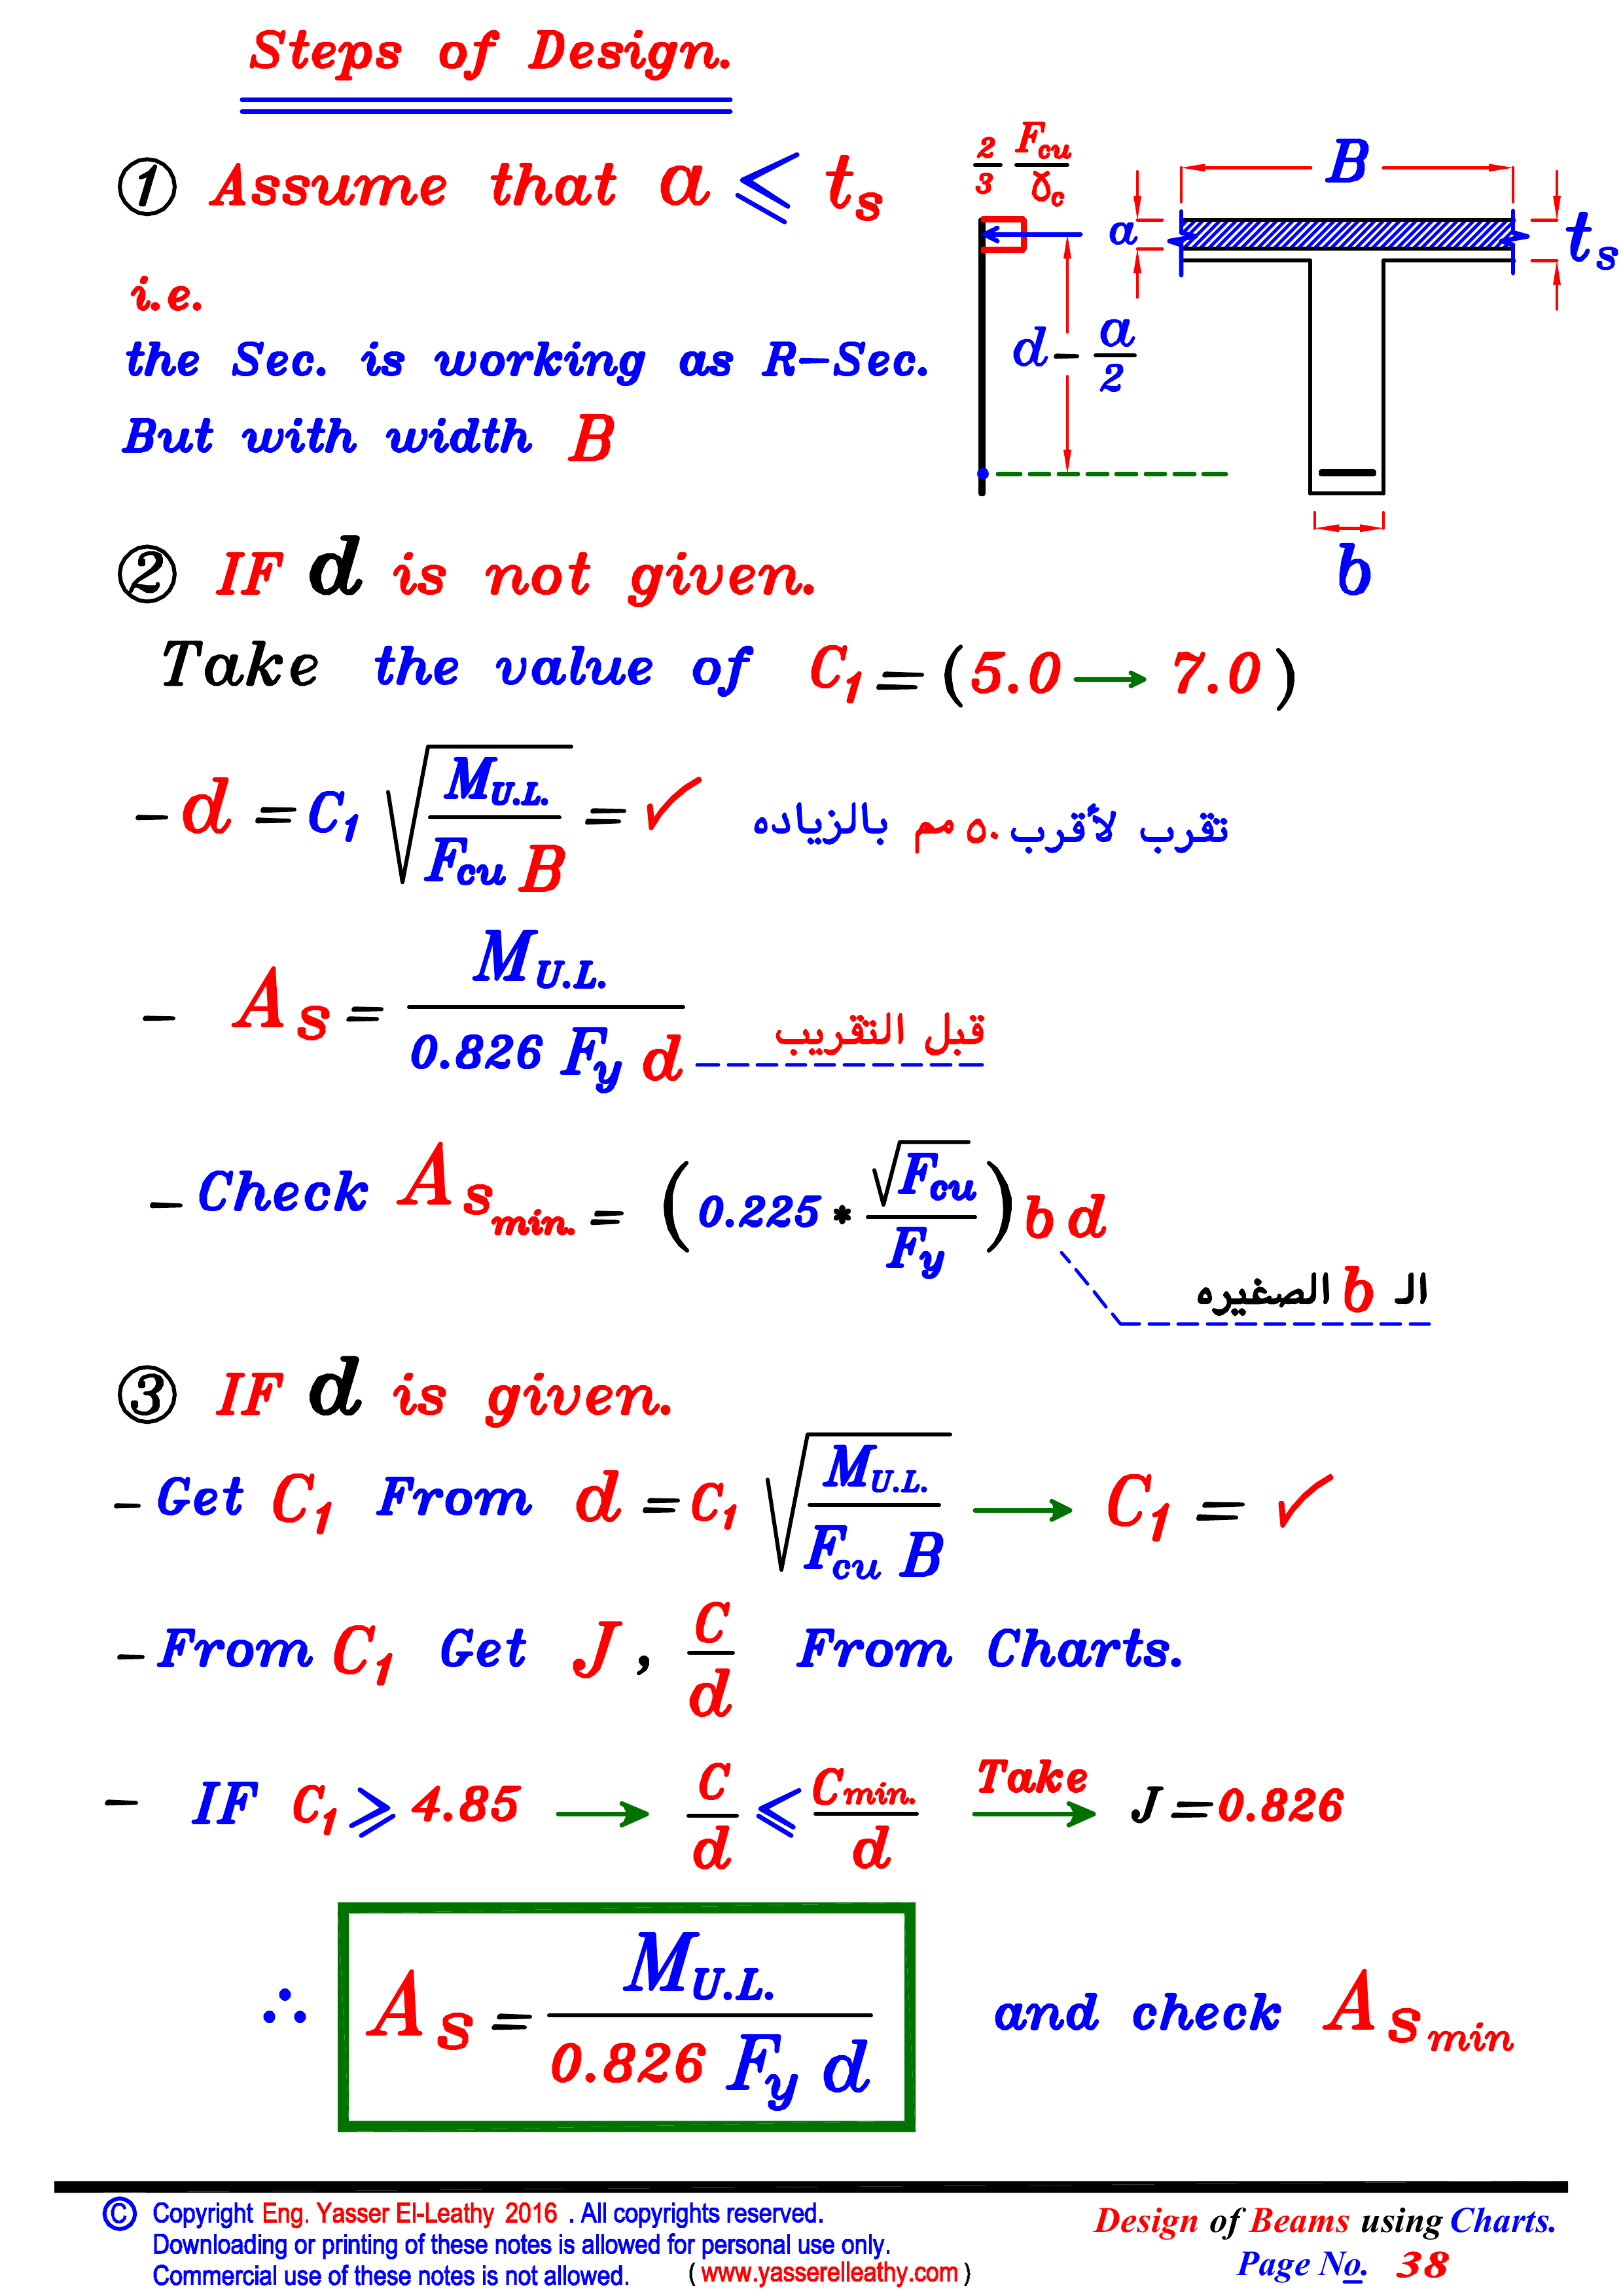 Steps of Design.
① Assume that a ⩽ ts
i.e.
the Sec. is working as R-Sec.
But with width B
2/3 Fcu/γc
a
d - a/2
B
ts
b
② IF d is not given.
Take the value of C1 = (5.0 → 7.0)
- d = C1 √(MU.L. / Fcu B) = ✓ تقرب لأقرب ٥٠ مم بالزياده
- As = MU.L. / 0.826 Fy d قبل التقريب
- Check Asmin. = (0.225 * √Fcu / Fy) b d
الـ b الصغيره
③ IF d is given.
- Get C1 From d = C1 √(MU.L. / Fcu B) → C1 = ✓
- From C1 Get J , C/d From Charts.
- IF C1 ⩾ 4.85 → C/d ⩽ Cmin./d Take → J = 0.826
∴ As = MU.L. / 0.826 Fy d and check Asmin
© Copyright Eng. Yasser El-Leathy 2016 . All copyrights reserved.
Downloading or printing of these notes is allowed for personal use only.
Commercial use of these notes is not allowed. ( www.yasserelleathy.com )
Design of Beams using Charts.
Page No. 38